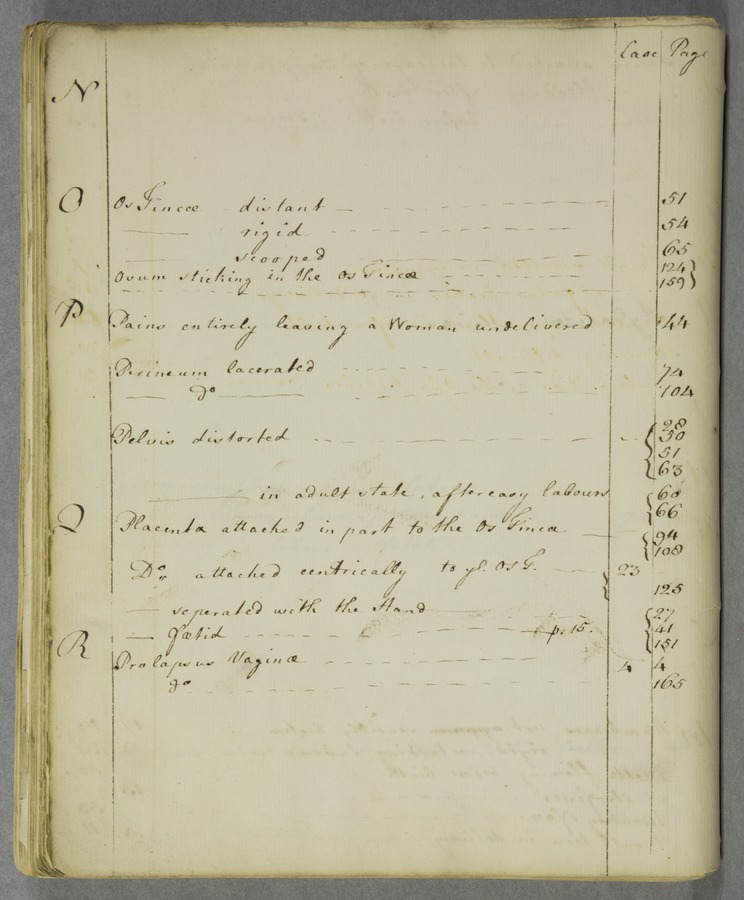 Case Page
N
O Os Tincæ distant — 51
—— rigid 54
scooped 65
Ovum sticking in the Os Tincæ 124
159
P Pains entirely leaving a Woman undelivered 44
Perineum lacerated 74
—— Do —— 104
Pelvis distorted 28
50
51
63
—— in adult state, after easy labours 60
66
Q Placenta attached in part to the Os Tincæ 94
108
Do. attached centrically to ye. Os T. 23
125
— seperated with the Hand 27
— fœtid p. 15. 41
151
R Prolapsus Vaginæ 4 4
do 165